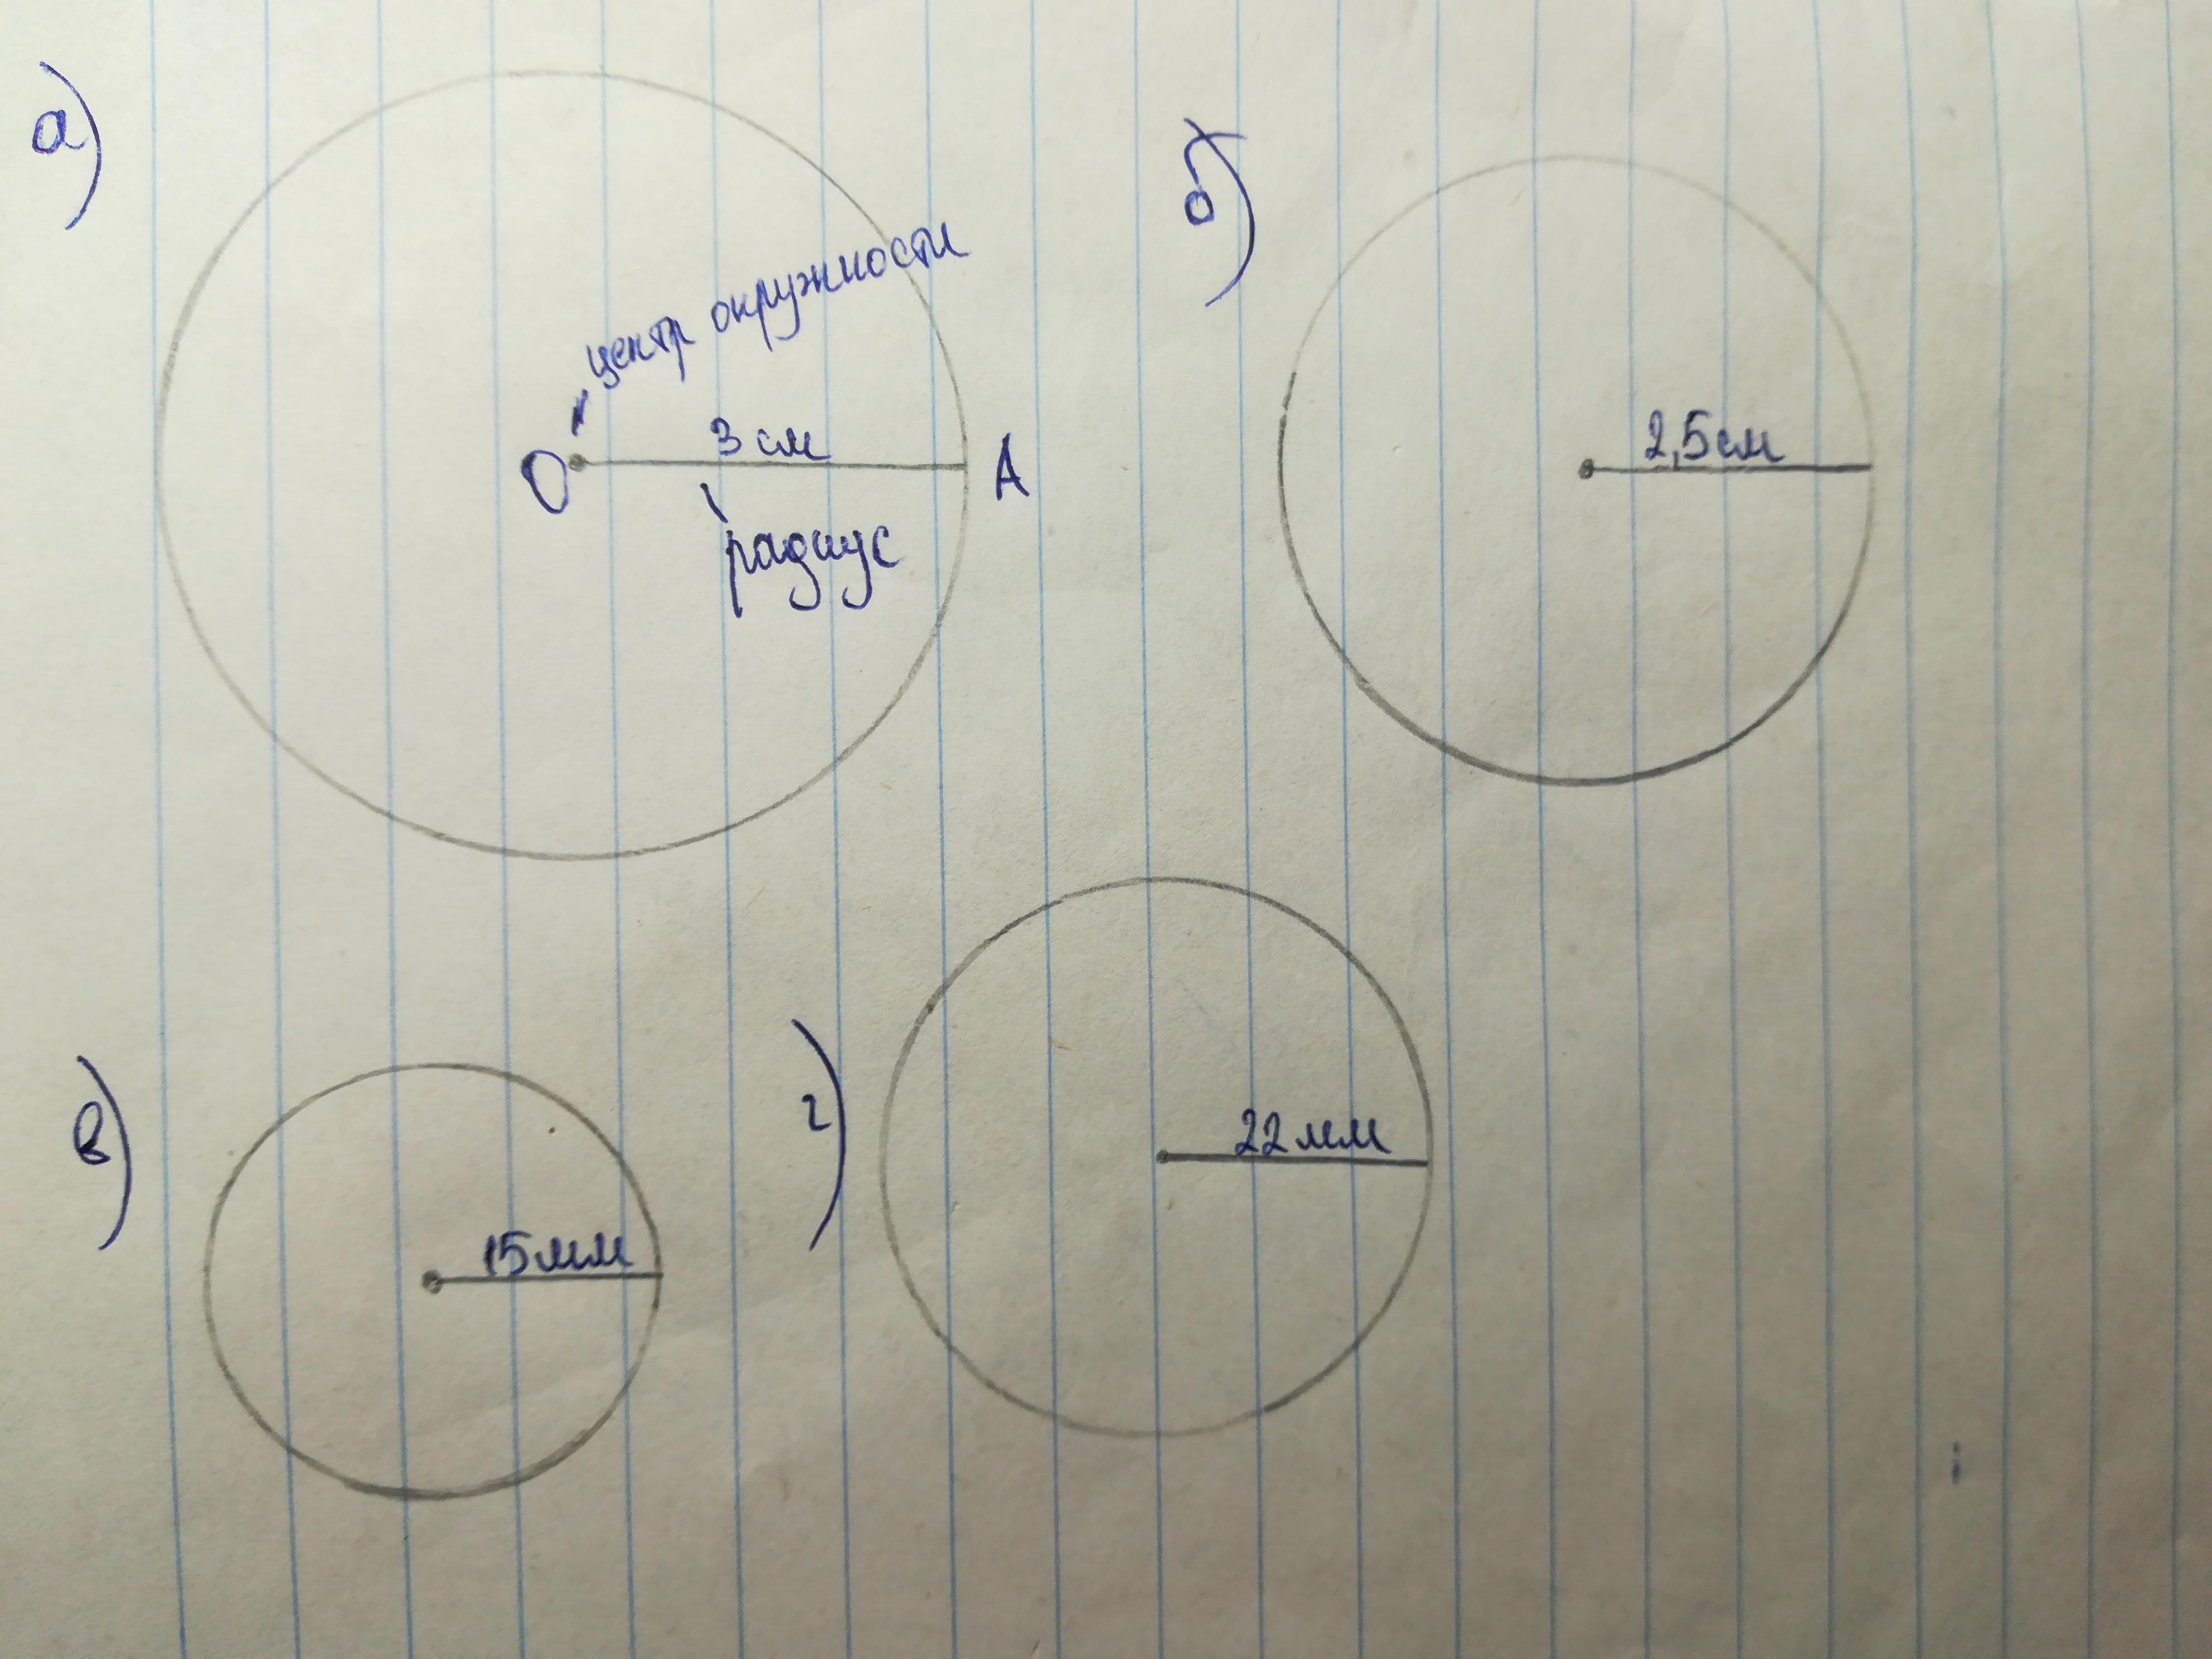 а)
центр окружности
3 см
О
А
радиус
б)
2,5 см
в)
15 мм
г)
22 мм